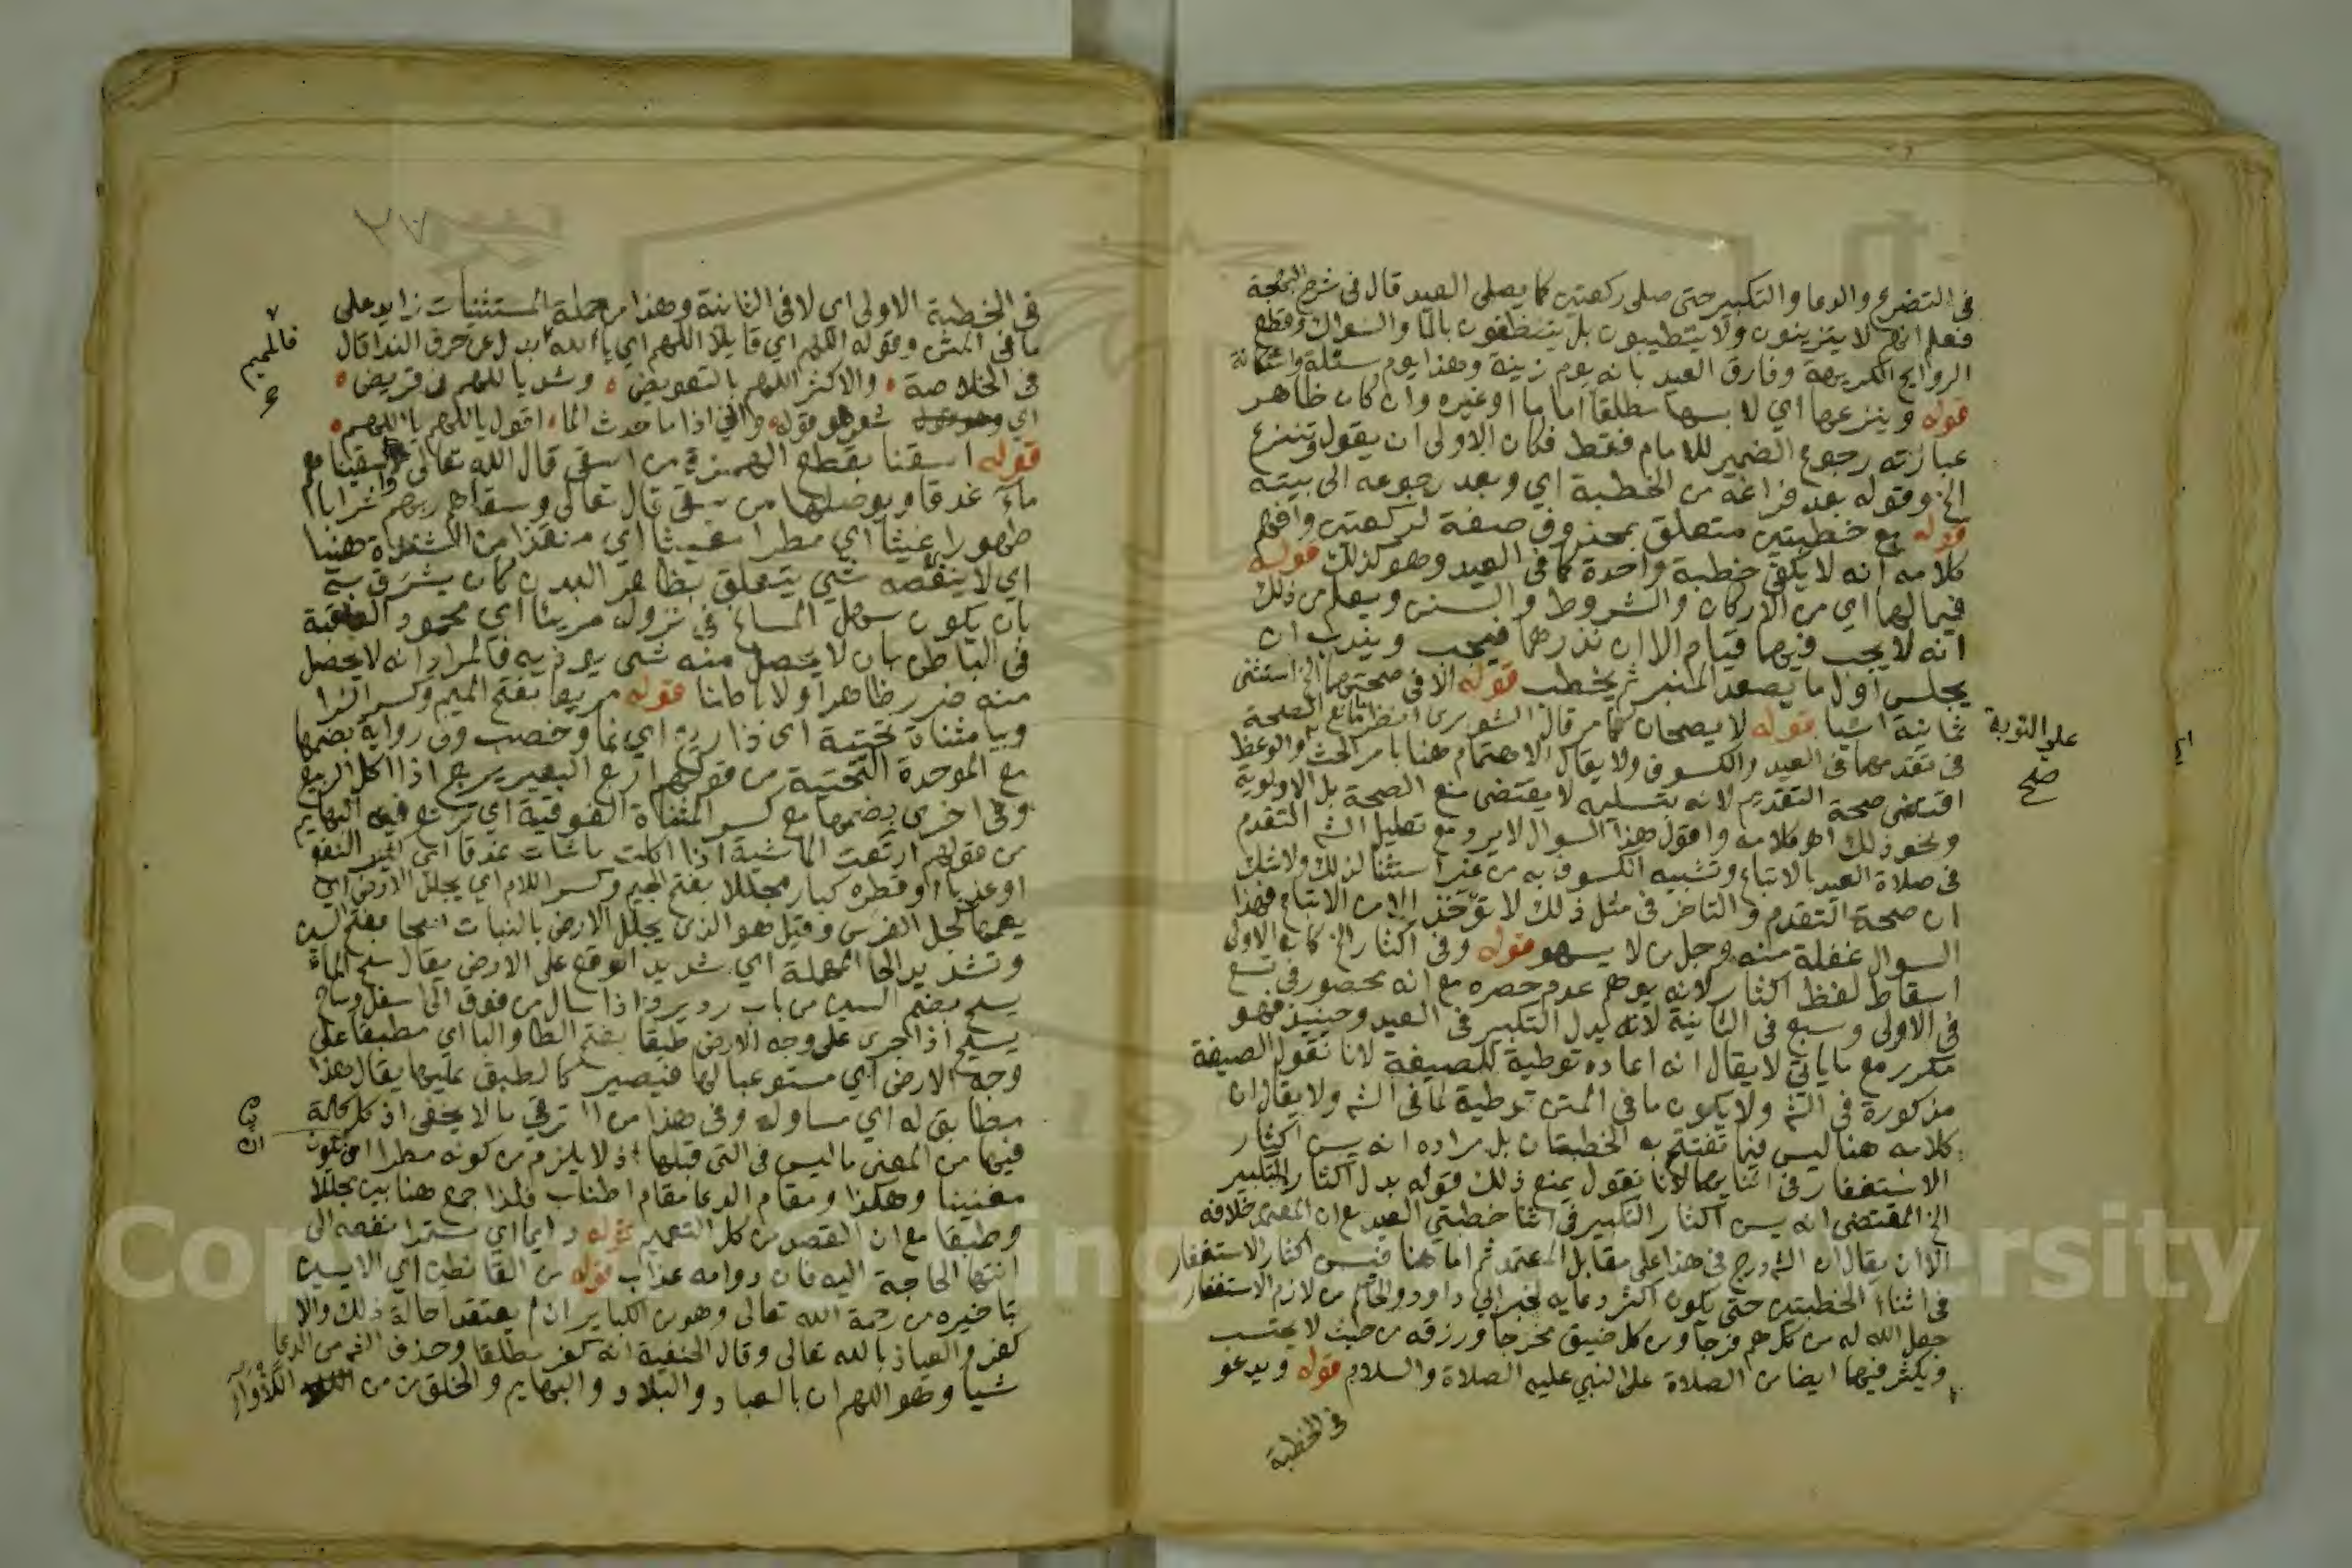 في التضرع والدعا والتكبير حتى صلى ركعتين كما يصلى العيد قال في شرح البهجة
فعلم انهم لا يتزينون ولا يتطيبون بل يتنظفون بالما والسواك وقطع
الروايح الكريهة وفارق العيد بانه يوم زينة وهذا يوم مسئلة واستكانة
قوله وينزعها اي لا بسها مطلقا اماما او غيره وان كان ظاهر
عبارته رجوع الضمير للامام فقط فكان الاولى ان يقول وتنزع
الخ وقوله بعد فراغه من الخطبة اي وبعد رجوعه الى بيته
قوله مع خطبتين متعلق بمحذوف صفة لركعتين وافهم
كلامه انه لا يكفي خطبة واحدة كما في العيد وهو كذلك قوله
فيما لهما اي من الاركان والشروط والسنن ويعلم من ذلك
انه لا يجب فيهما قيام الا ان نذرهما فيجب ويندب ان
يجلس اول ما يصعد المنبر ثم يخطب قوله الا في صحتهما الخ استثنى
ثمانية اشيا قوله لا يصحان كما مر قال الشوبري انظر ما مانع الصحة
في تقدمهما في العيد والكسوف ولا يقال الاهتمام هنا بامر الحث والوعظ
على التوبة صح
اقتضى صحة التقديم لانه بتسليمه لا يقتضى منع الصحة بل الاولوية
ونحو ذلك اهـ كلامه واقول هذا السوال لا يرد مع تعليل الشـ التقدم
في صلاة العيد بالاتباع وتشبيه الكسوف به من غير استثنا لذلك ولا شك
ان صحة التقدم والتاخر في مثل ذلك لا تؤخذ الا من الاتباع فهذا
السوال غفلة منه وجل من لا يسهو قوله وفي اكثار الخ كان الاولى
اسقاط لفظ اكثار لانه يوهم عدم حصره مع انه محصور في تسع
في الاولى وسبع في الثانية لانه بدل التكبير في العيد وحينيذ فهو
مكرر مع ما ياتي لا يقال انه اعاده توطية للصيغة لانا نقول الصيغة
مذكورة في الشـ ولا يكون ما في المتن توطية لما في الشـ ولا يقال ان
كلامه هنا ليس فيما تفتتح به الخطبتان بل مراده انه يسن اكثار
الاستغفار في اثنايهما لانا نقول يمنع ذلك قوله بدل اكثار التكبير
الخ المقتضى انه يسن اكثار التكبير في اثنا خطبتي العيد مع ان المعتمد خلافه
الا ان يقال ان الشـ درج في هذا على مقابل المعتمد ثم اما هنا فيسن اكثار الاستغفار
في اثناء الخطبتين حتى يكون اكثر دعايه لخبر ابي داوود والحاكم من لازم الاستغفار
جعل الله له من كل هم فرجا ومن كل ضيق مخرجا ورزقه من حيث لا يحتسب
ويكثر فيهما ايضا من الصلاة على النبي عليه الصلاة والسلام قوله ويدعو
في الخطبة
في الخطبة الاولى اي لا في الثانية وهذا من جملة المستثنيات زايد على
ما في المتن وقوله اللهم اي قايلا اللهم اي يا الله ابدل عن حرف الندا قال
فالميم
في الخلاصة والاكثر اللهم بالتعويض وشذ يا اللهم في قريض
اي شعر وهو قوله واني اذا ما حدث الما اقول يا اللهم يا اللهم
قوله اسقنا بقطع الهمزة من اسقى قال الله تعالى واسقيناهم
ماء غدقا وبوصلها من سقى قال تعالى وسقاهم ربهم شرابا
طهورا غيثا اي مطرا مغيثا اي منقذا من الشدة هنيا
اي لا ينغصه شي يتعلق بظاهر البدن كان يشرق به
بان يكون سهل المساغ في نزوله مريئا اي محمود العاقبة
في الباطن بان لا يحصل منه شي يوذيه فالمراد انه لا يحصل
منه ضرر ظاهرا ولا باطنا قوله مريعا بفتح الميم وكسر الرا
وبيا مثناة تحتية اي ذا ريع اي نما وخصب وفي رواية بضمها
مع الموحدة التحتية من قولهم اربع البعير يربع اذا اكل الربيع
وفي اخرى بضمها مع كسر المثناة الفوقية اي ترتع فيه البهايم
من قولهم ارتعت الماشية اذا اكلت ما شات غدقا اي كثير النفع
او عذبا او قطره كبار مجللا بفتح الجيم وكسر اللام اي يجلل الارض اي
يعمها كجل الفرس وقيل هو الذي يجلل الارض بالنبات سحا بفتح السين
وتشديد الحا المهملة اي شديد الوقع على الارض يقال سح الماء
يسح بضم السين من باب رد يرد اذا سال من فوق الى اسفل وساح
يسيح اذا جرى على وجه الارض طبقا بفتح الطا والبا اي مطبقا على
وجه الارض اي مستوعبا لها فيصير كالطبق عليها يقال هذا
مطابق له اي مساو له وفي هذا من الترقي ما لا يخفى اذ كل حالة
فيها من المعنى ما ليس في التي قبلها اذ لا يلزم من كونه مطرا ان يكون
مغيثا وهكذا ومقام الدعا مقام اطناب فلذا جمع هنا بين مجللا
وطبقا مع ان القصد من كل التعميم قوله دايما اي مستمرا نفعه الى
انتها الحاجة اليه فان دوامه عذاب قوله من القانطين اي الايسين
بتاخيره من رحمة الله تعالى وهو من الكباير ان لم يعتقد احالة ذلك والا
كفر والعياذ بالله تعالى وقال الحنفية انه كفر مطلقا وحذف الشـ من الدعا
شيا وهو اللهم ان بالعباد والبلاد والبهايم والخلق من اللاواء
Copyright © King Saud University